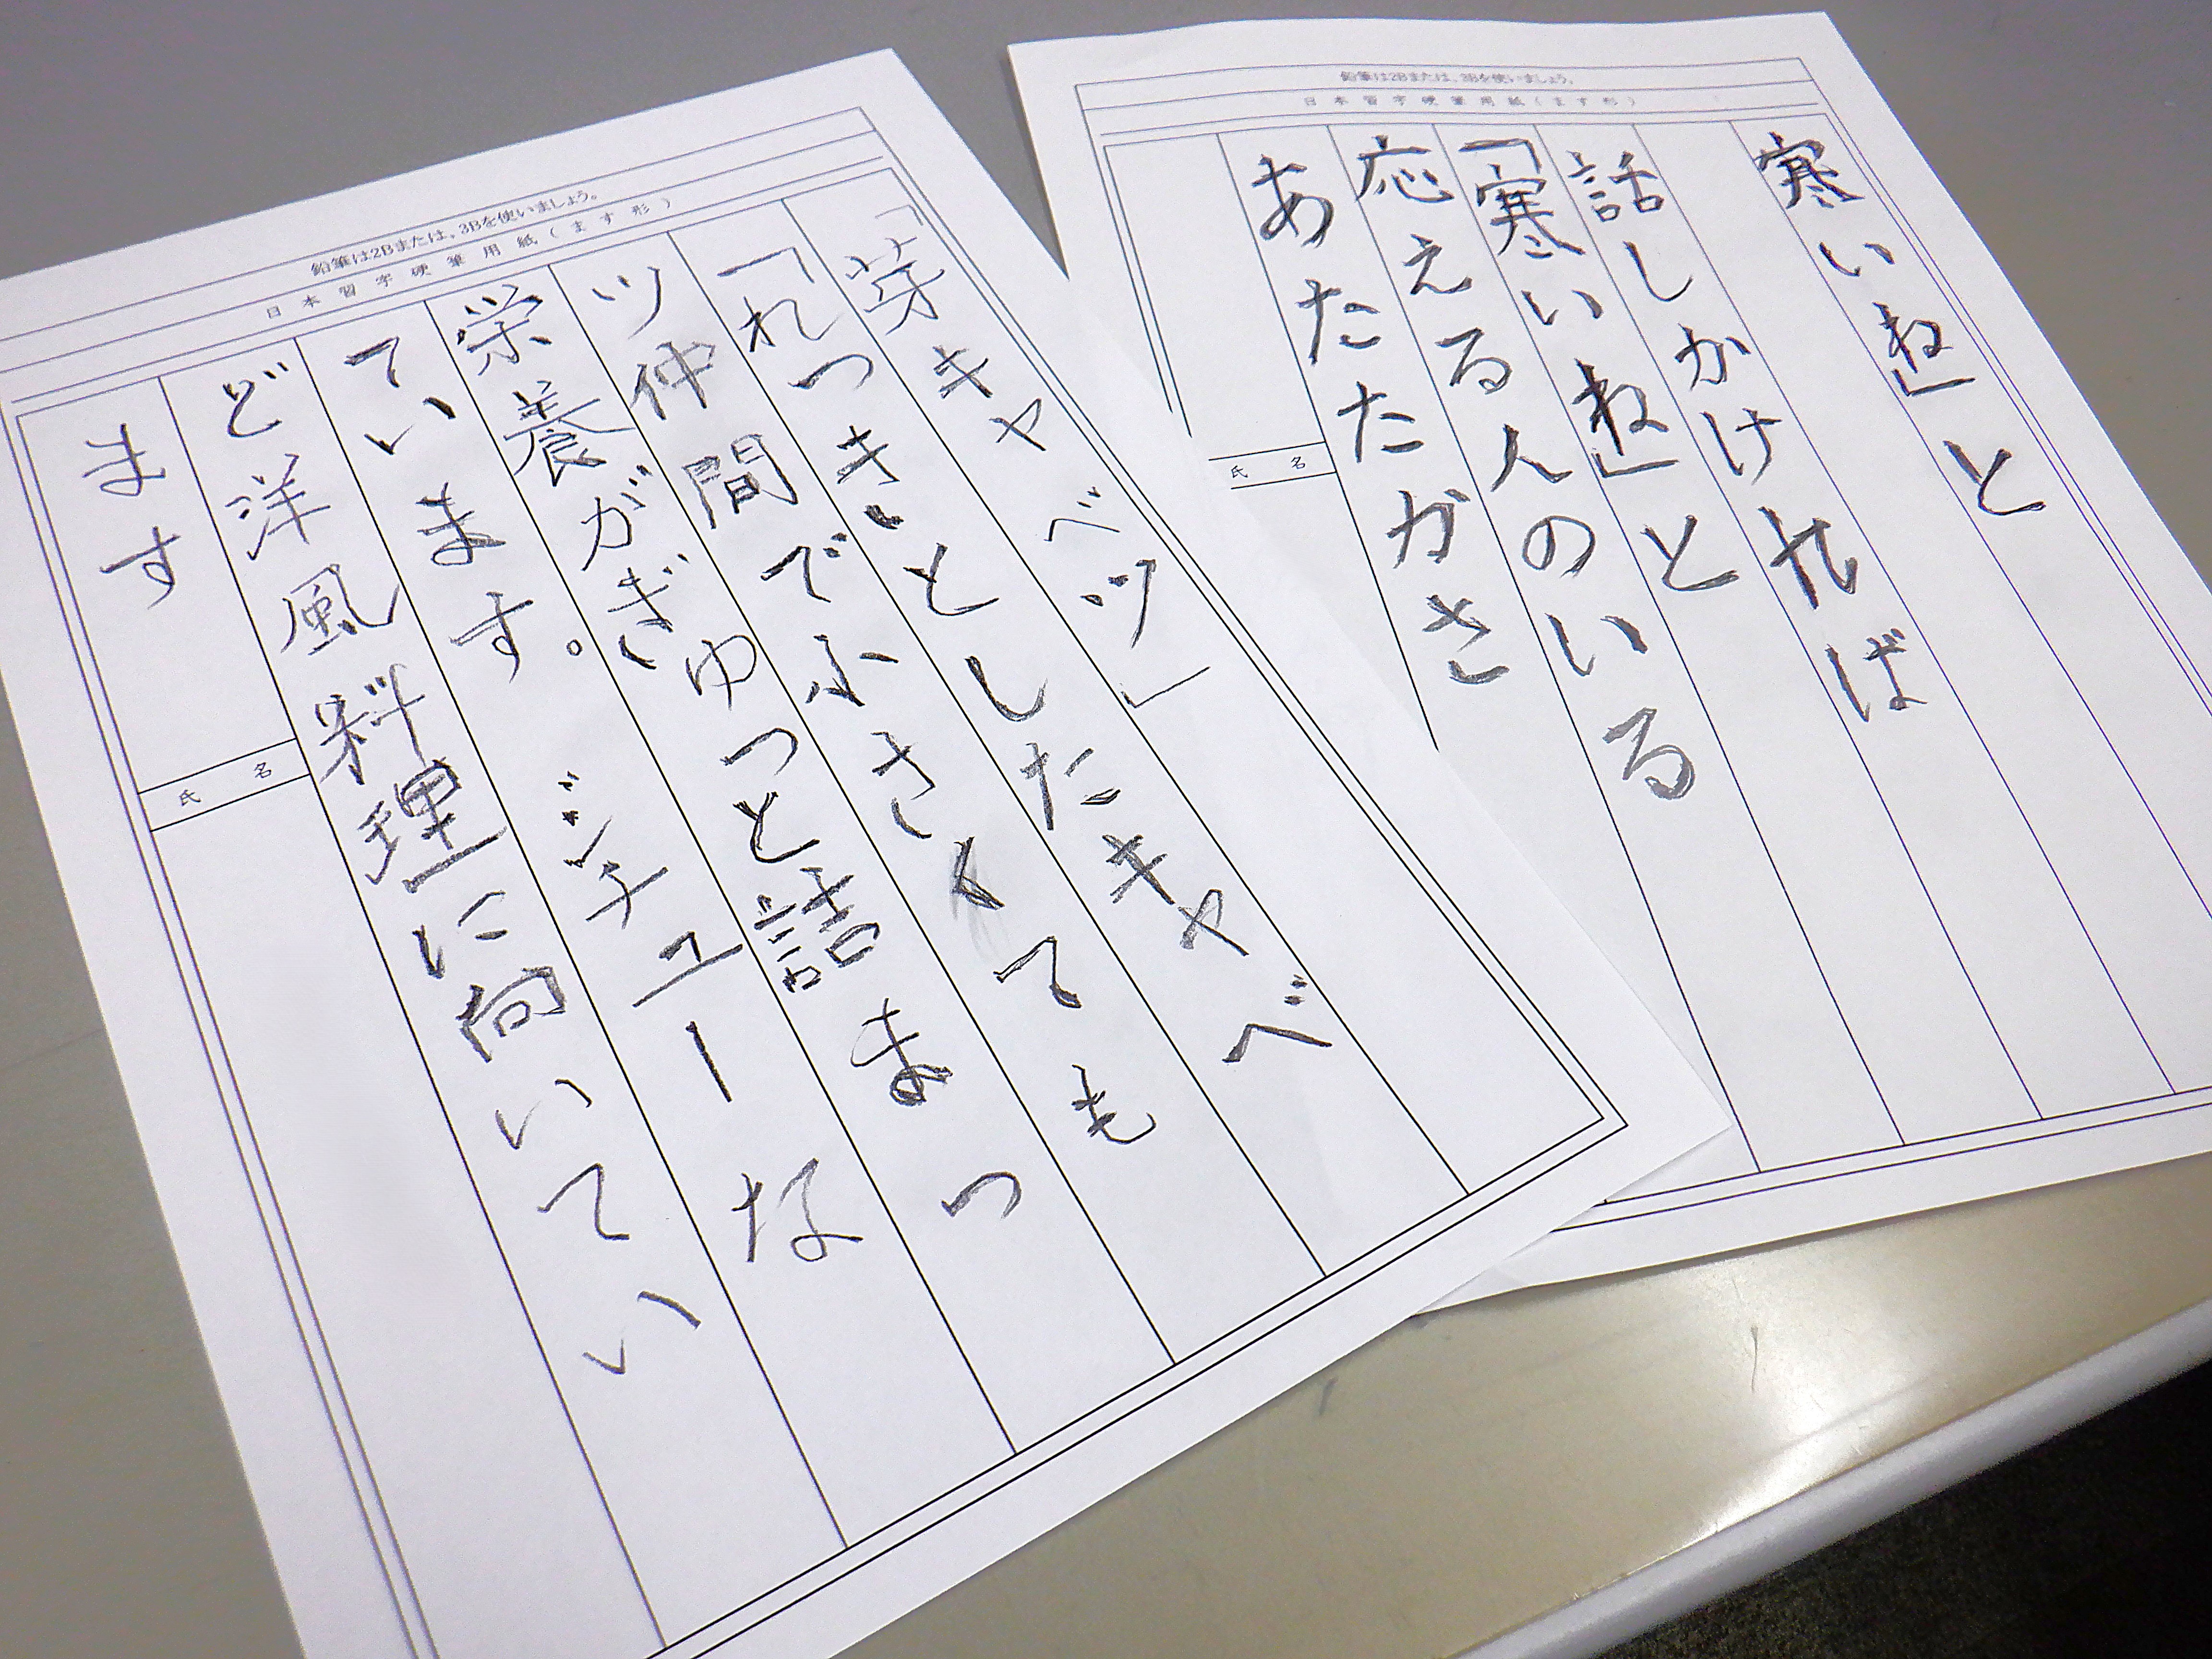 鉛筆は2Bまたは、3Bを使いましょう。
日本習字硬筆用紙(ます形)
寒いね」と
話しかければ
「寒いね」と
応える人のいる
あたたかさ
氏名
鉛筆は2Bまたは、3Bを使いましょう。
日本習字硬筆用紙(ます形)
「芽キャベツ」
「れっきとしたキャベ
ツ仲間で小さくても
栄養がぎゅっと詰まっ
ています。シチューな
ど洋風料理に向いてい
ます
氏名